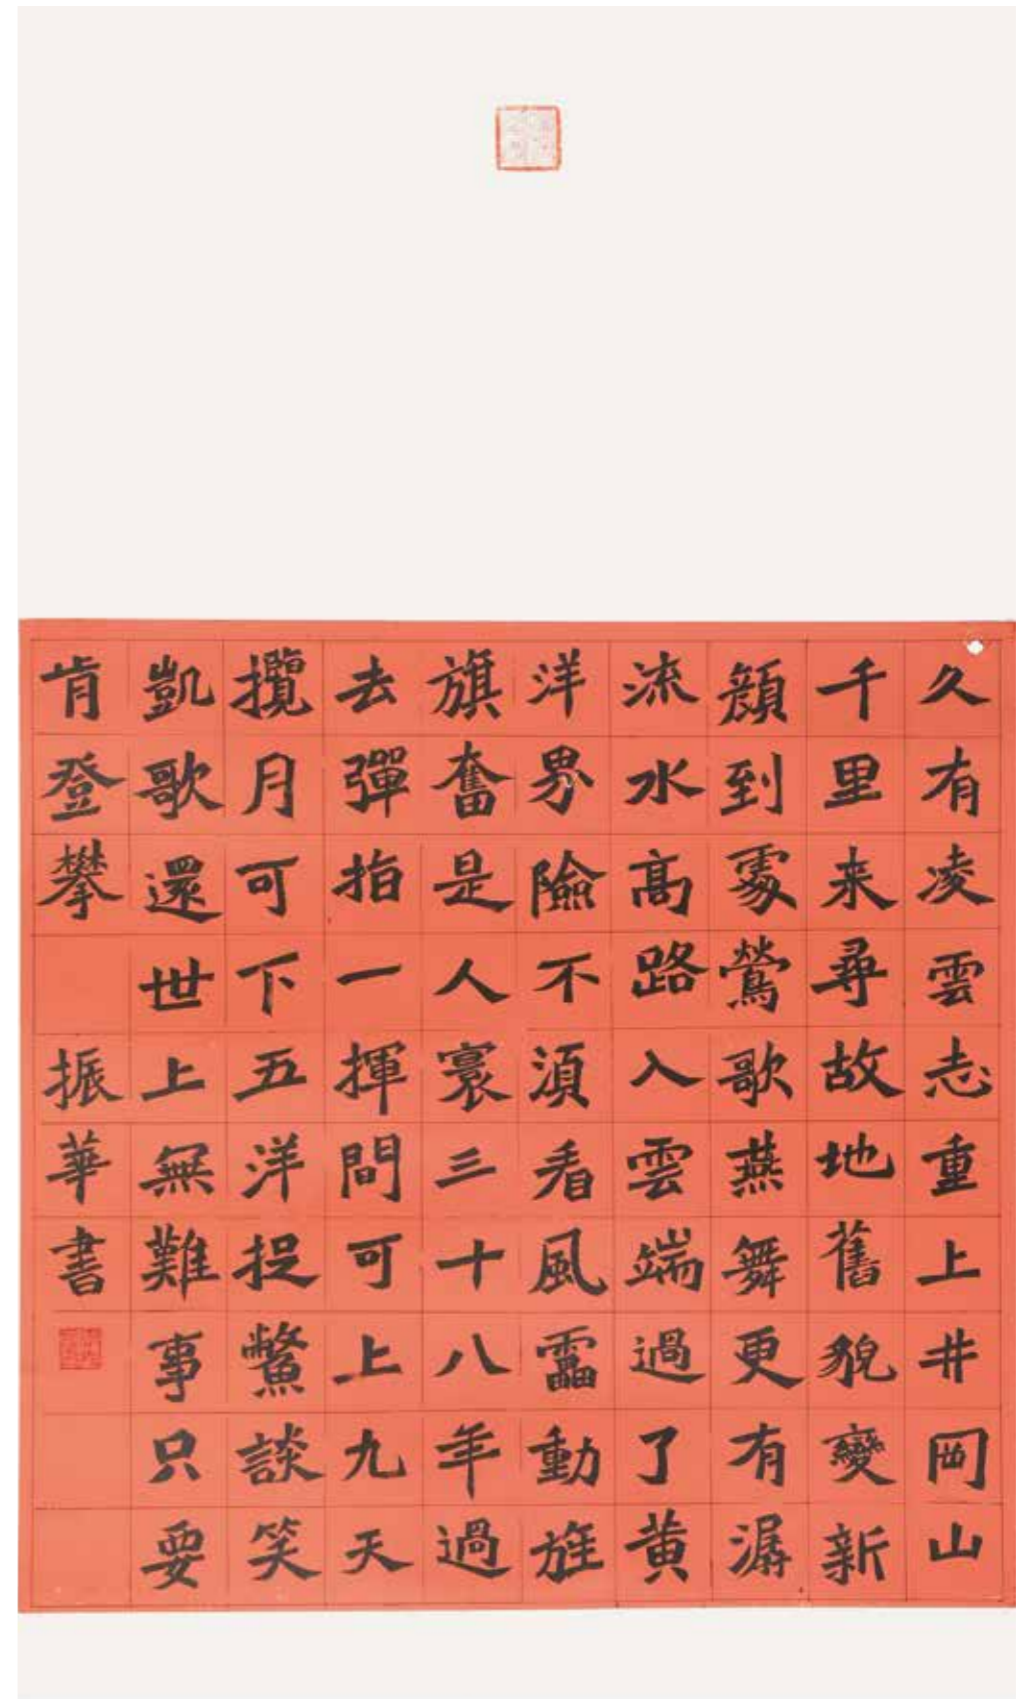 久有凌雲志重上井岡山
千里来尋故地舊貌變新
顔到處鶯歌燕舞更有潺
流水髙路入雲端過了黄
洋界險不須看風靁動旌
旗奮是人寰三十八年過
去彈指一揮間可上九天
攬月可下五洋捉鱉談笑
凱歌還世上無難事只要
肯登攀 振華書